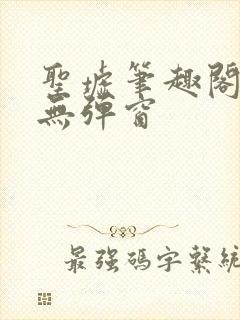 聖墟筆趣閣
無彈窗
最強碼字繫統